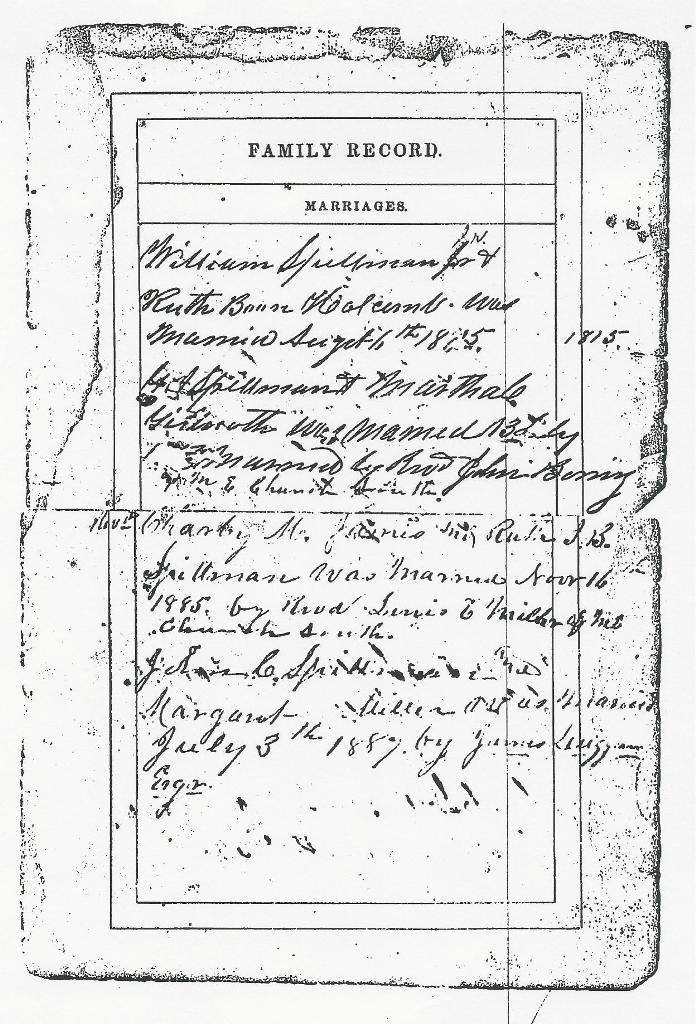 FAMILY RECORD.
MARRIAGES.
William Spillman Jr &
Ruth Boon Holcomb. Was
Married Augst 6th 1815. 1815.
Spillman & Martha C
Was Married 13 July
Married by Revd John
M E Church South.
Charly M. Ruth J. B.
Spillman Was Married Novr 16
1885. by Revd Lewis E Miller of ME
Church South.
John C. Spillman and
Margaret Miller Was Married
July 3th 1887. by James
Esqr.